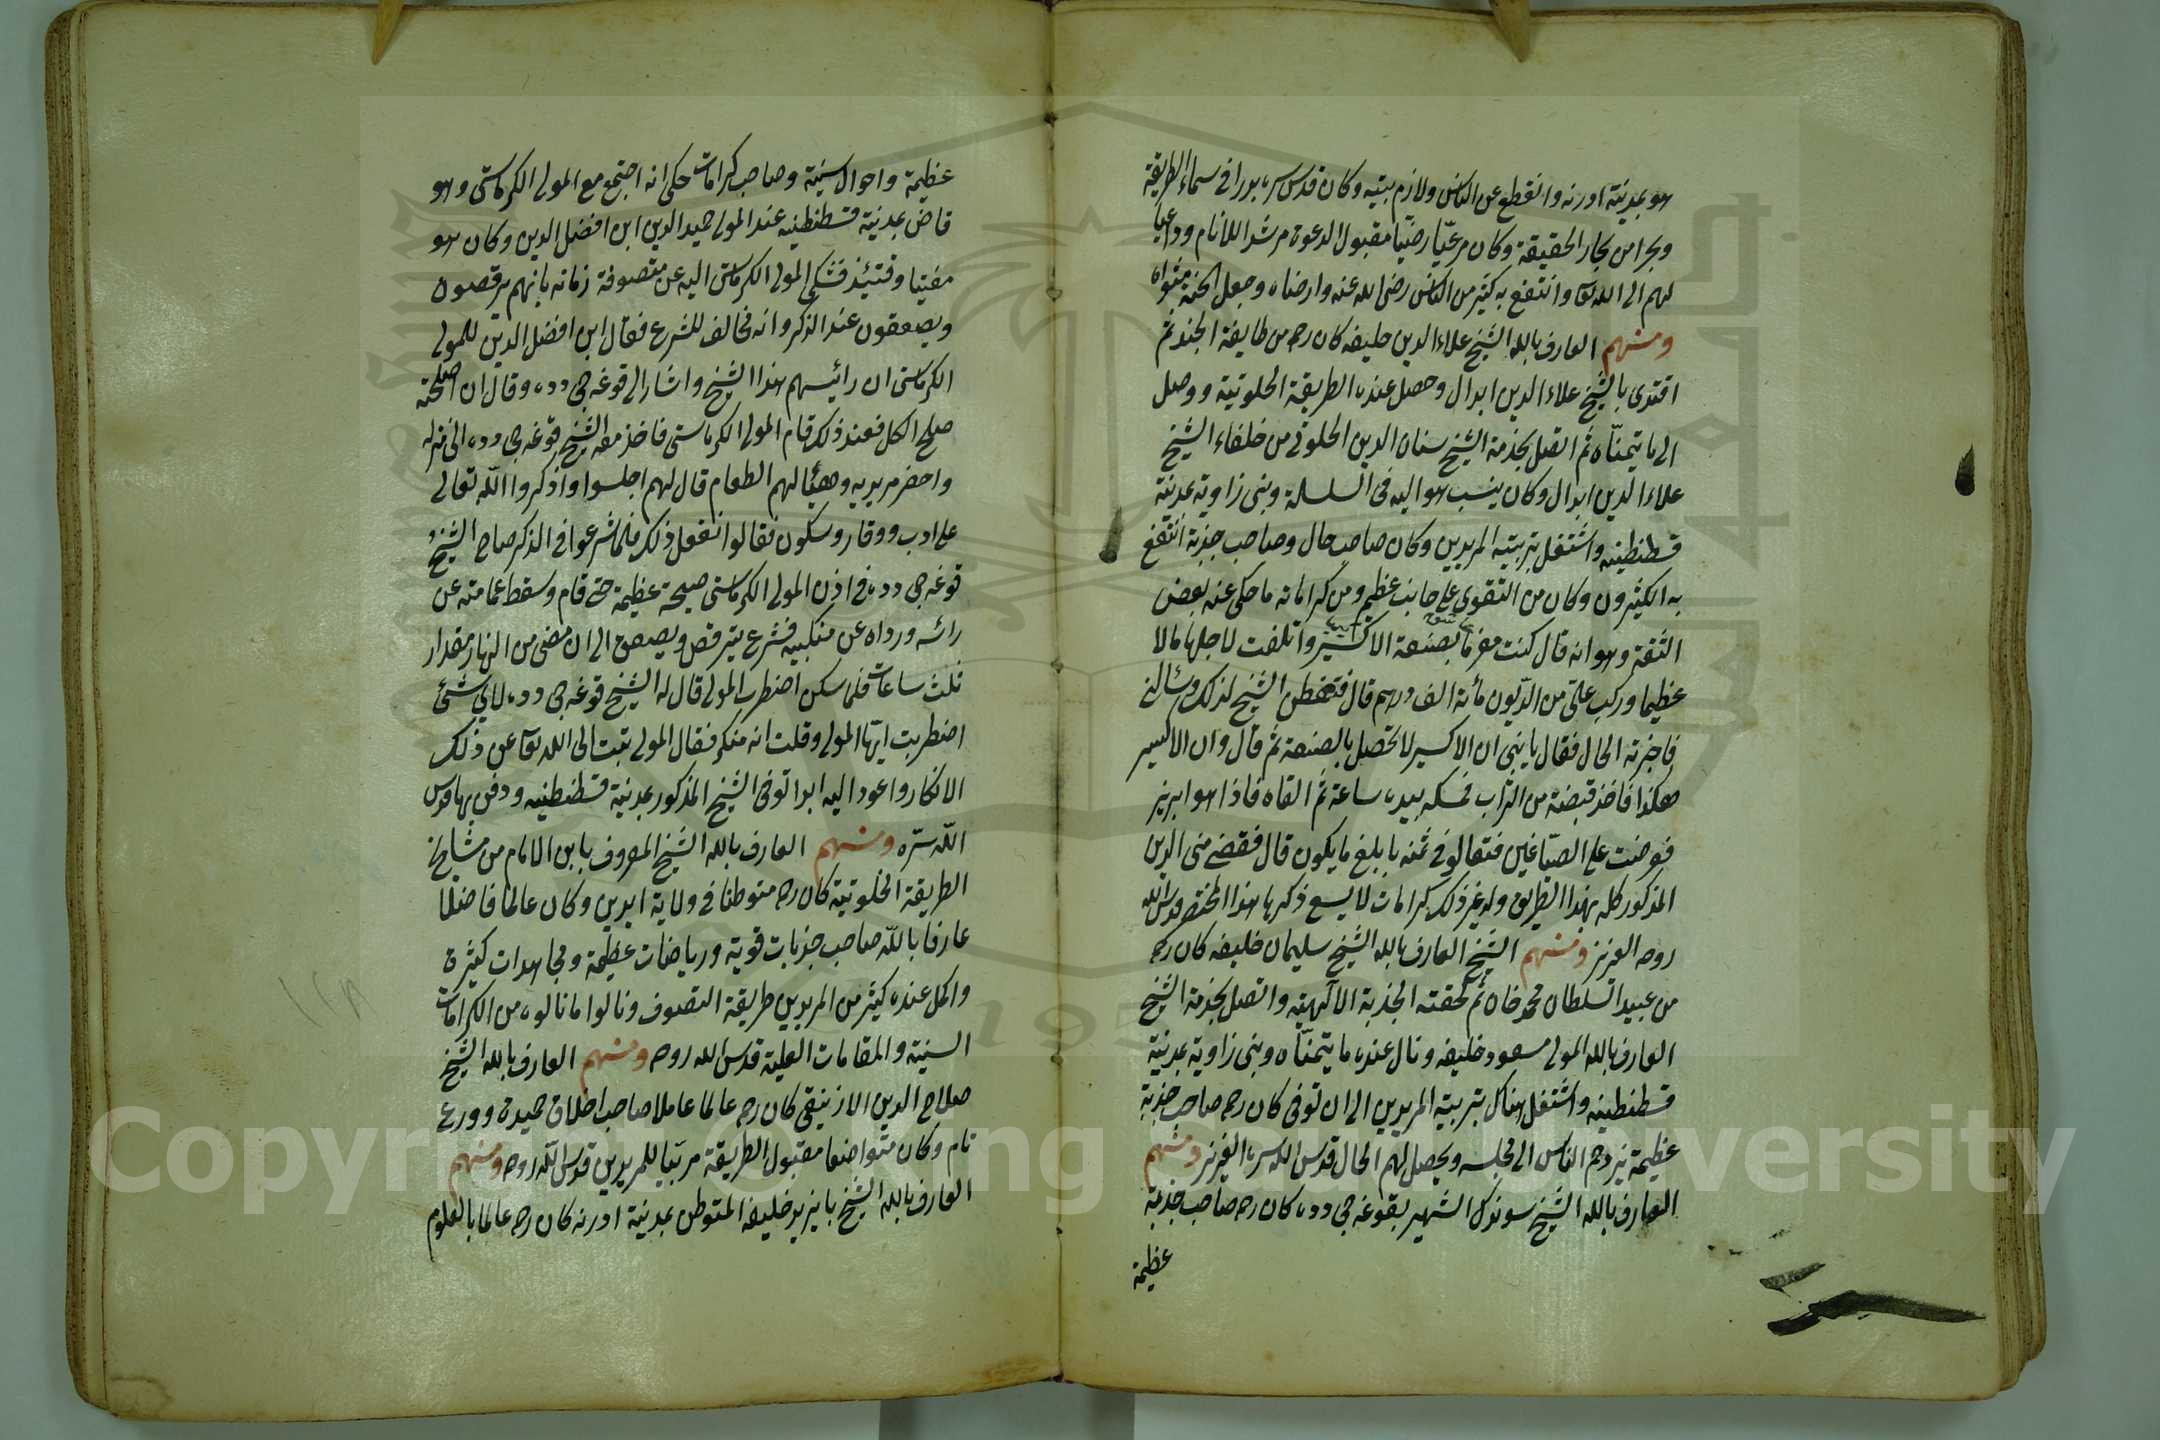 هو بمدينة ادرنه وانقطع عن الناس ولازم بيته وكان قدس سره بدرا في سماء الطريقة
وبحرا من بحار الحقيقة وكان مرضيا مقبول الدعوة مرشدا للانام وداعيا
لهم الى الله تعا وانتفع به كثير من الناس رضى الله عنه وارضاه وجعل الجنة مثواه
ومنهم العارف بالله الشيخ علاء الدين خليفه كان رحه من طايفة الجند ثم
اقتدى بالشيخ علاء الدين ابدال وحصل عنده الطريقة الخلوتية ووصل
الى ما يتمناه ثم اتصل بخدمة الشيخ سنان الدين الخلوتى من خلفاء الشيخ
علاء الدين ابدال وكان ينسب هو اليه فى السلسلة وبنى زاوية بمدينة
قسطنطينيه واشتغل بتربيته المريدين وكان صاحب حال وصاحب جذبة انتفع
به الكثيرون وكان من التقوى على جانب عظيم ومن كراماته ما حكى عنه بعض
الثقة وهو انه قال كنت مغرما بصنعة الاكسير واتلفت لاجلها مالا
عظيما وركب على من الديون مأة الف درهم قال فتفطن الشيخ لذلك وسألنى
فاخبرته الحال فقال يا بنى ان الاكسير لا تحصل بالصنعة ثم قال وان الاكسير
هكذا فاخذ قبضة من التراب فمسكه بيده ساعة ثم القاه فاذا هو ابريز
فعرضت على الصباغين فتغالوا فى ثمنه بابلغ ما يكون قال فقضى منى الدين
المذكور كله بهذا الطريق وله غير ذلك كرامات لا يسع ذكرها هذا المختصر قدس الله
روحه العزيز ومنهم الشيخ العارف بالله الشيخ سليمان خليفه كان رحه
من عبيد السلطان محمد خان ثم لحقته الجذبة الالهية واتصل بخدمة الشيخ
العارف بالله المولى مسعود خليفه ونال عنده ما يتمناه وبنى زاوية بمدينة
قسطنطينيه واشتغل هناك بتربيته المريدين الى ان توفى كان رحه صاحب جذبة
عظيمة يزدحم الناس الى مجلسه ويحصل لهم الحال قدس الله سره العزيز ومنهم
العارف بالله الشيخ سوندك الشهير بقوغه جى دده كان رحه صاحب جذبة
عظيمة
عظيمة واحوال سنية وصاحب كرامات حكى انه اجتمع مع المولى الكرماستى وهو
قاض بمدينة قسطنطينيه عند المولى حميد الدين ابن افضل الدين وكان هو
مفتيا وقتئذ فشكى المولى الكرماستى اليه عن متصوفة زمانه بانهم يرقصون
ويصعقون عند الذكر وانه مخالف للشرع فقال ابن افضل الدين للمولى
الكرماستى ان رائيسهم هذا الشيخ واشار الى قوغه جى دده وقال ان اصلحته
صلح الكل فعند ذلك قام المولى الكرماستى فاخذ معه الشيخ قوغه جى دده الى منزله
واحضر مريديه وهيأ لهم الطعام قال لهم اجلسوا واذكروا الله تعالى
على ادب ووقار وسكون فقالوا نفعل ذلك فلما شرعوا فى الذكر صاح الشيخ
قوغه جى دده فى اذن المولى الكرماستى صيحة عظيمة حتى قام وسقط عمامته عن
رائسه ورداه عن منكبيه فشرع يترقص ويصعق الى ان مضى من النهار مقدار
ثلث ساعات فلما سكن اضطراب المولى قال له الشيخ قوغه جى دده لاى شئ
اضطربت ايها المولى وقلت انه منكر فقال المولى تبت الى الله تعا عن ذلك
الانكار ولا اعود اليه ابدا توفى الشيخ المذكور بمدينة قسطنطينيه ودفن بها قدس
الله سره ومنهم العارف بالله الشيخ المعروف بابن الامام من مشايخ
الطريقة الخلوتية كان رحه متوطنا فى ولاية ايدين وكان عالما فاضلا
عارفا بالله صاحب جذبات قوية ورياضات عظيمة ومجاهدات كثيرة
واكمل عنده كثير من المريدين طريقة التصوف ونالوا ما نالوه من الكرامات
السنية والمقامات العلية قدس الله روحه ومنهم العارف بالله الشيخ
صلاح الدين الازنيقى كان رحه عالما عاملا صاحب اخلاق حميدة وورع
تام وكان متواضعا مقبول الطريقة مربيا للمريدين قدس الله روحه ومنهم
العارف بالله الشيخ بايزيد خليفه المتوطن بمدينة ادرنه كان رحه عالما بالعلوم
Copyright © King Saud University